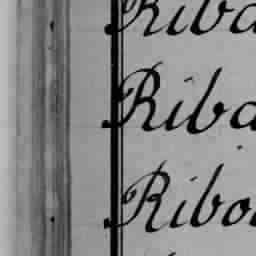 Riba
Riba
Ribo